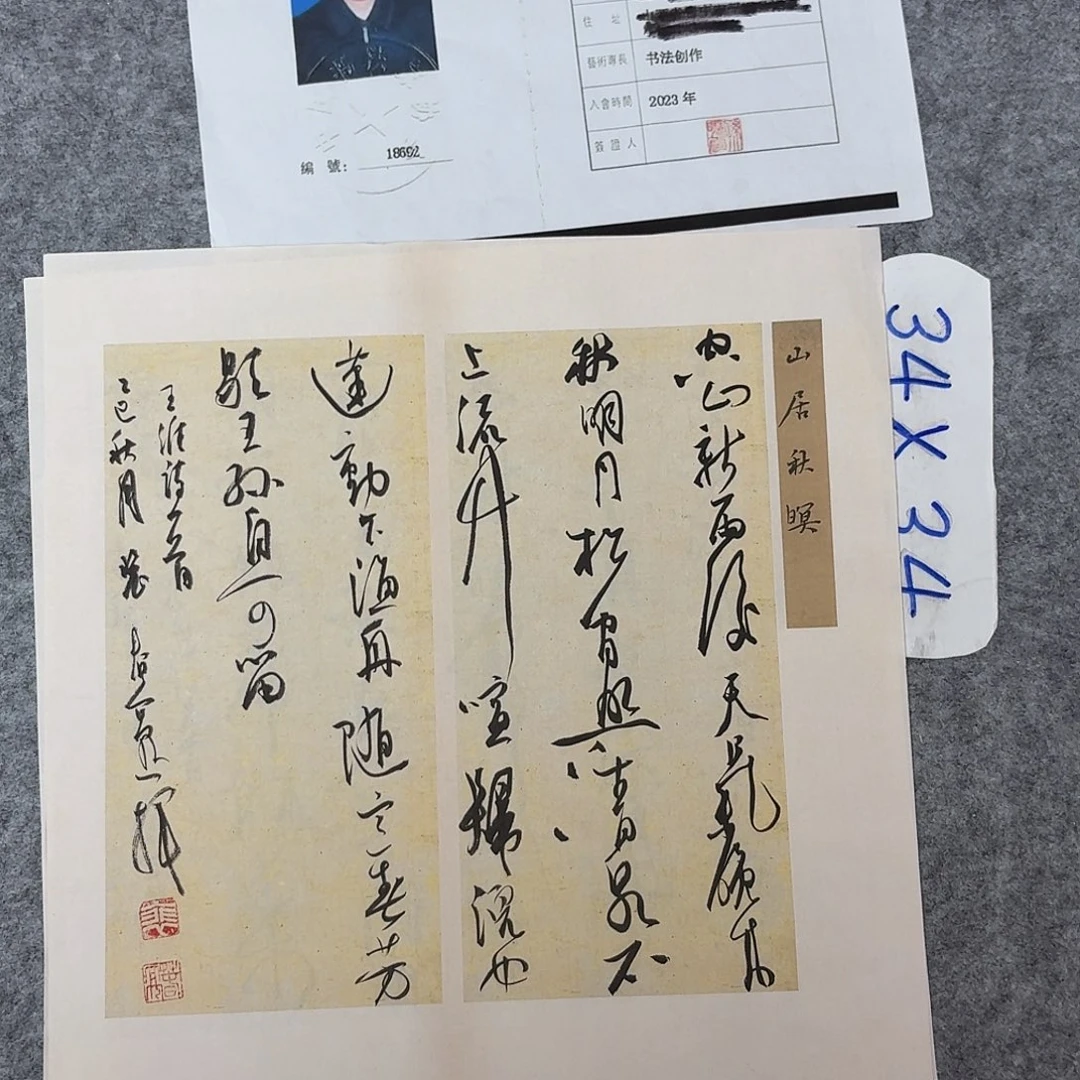 住 址
藝術專長 书法创作
入會時間 2023 年
簽證人
編 號: 18692
山居秋暝
空山新雨後天氣晚來
秋明月松間照清泉石
上流竹喧歸浣女
蓮動下漁舟随意春芳
歇王孫自可留
王維詩一首
乙巳秋月
34X34